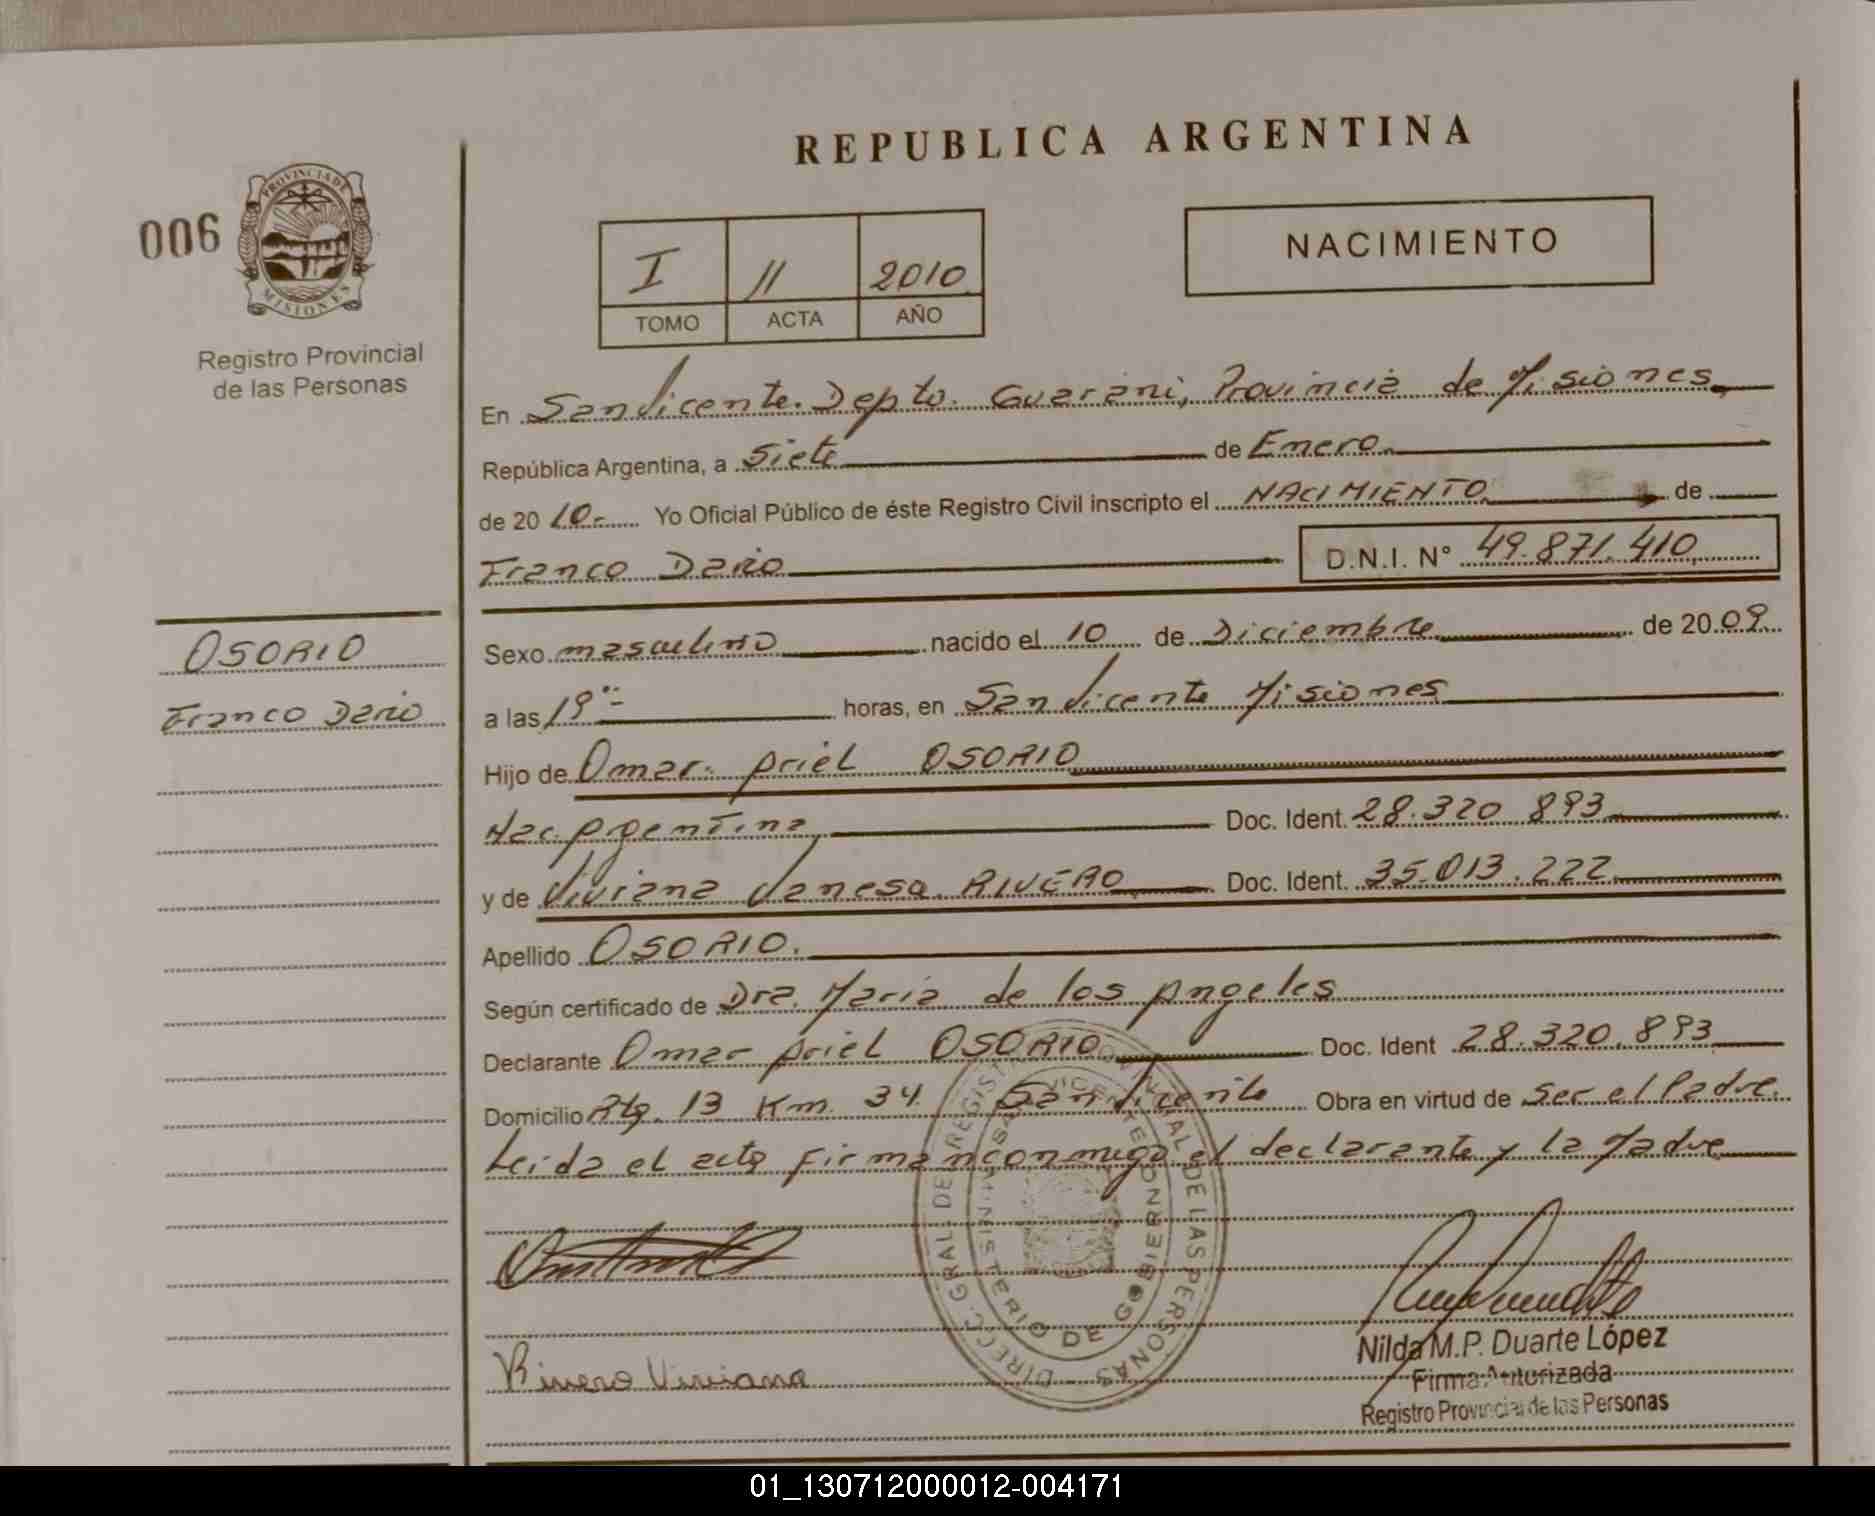 REPUBLICA ARGENTINA
006
PROVINCIA DE
MISIONES
Registro Provincial
de las Personas
I 11 2010
TOMO ACTA AÑO
NACIMIENTO
En San Vicente. Depto. Guarani, Provincia de Misiones
República Argentina, a Siete de Enero
de 20 10.- Yo Oficial Público de éste Registro Civil inscripto el NACIMIENTO de
Franco Dario D.N.I. N° 49.871.410
OSORIO
Franco Dario
Sexo masculino nacido el 10 de Diciembre de 20 09
a las 19 horas, en San Vicente Misiones
Hijo de Omar Ariel OSORIO
Nac. Argentina Doc. Ident. 28.320.893
y de Viviana Vanesa RIVERO Doc. Ident. 35.013.222
Apellido OSORIO.
Según certificado de Dra. Maria de los Angeles
Declarante Omar Ariel OSORIO Doc. Ident 28.320.893
Domicilio Rta. 13 Km. 34 San Vicente Obra en virtud de ser el Padre.
Leida el acta firman conmigo el declarante y la Madre
DIRECC. GRAL. DE REGISTRO PROVINCIAL DE LAS PERSONAS
SAN VICENTE
MINISTERIO DE GOBIERNO
Rivero Viviana
Nilda M.P. Duarte López
Firma Autorizada
Registro Provincial de las Personas
01_130712000012-004171